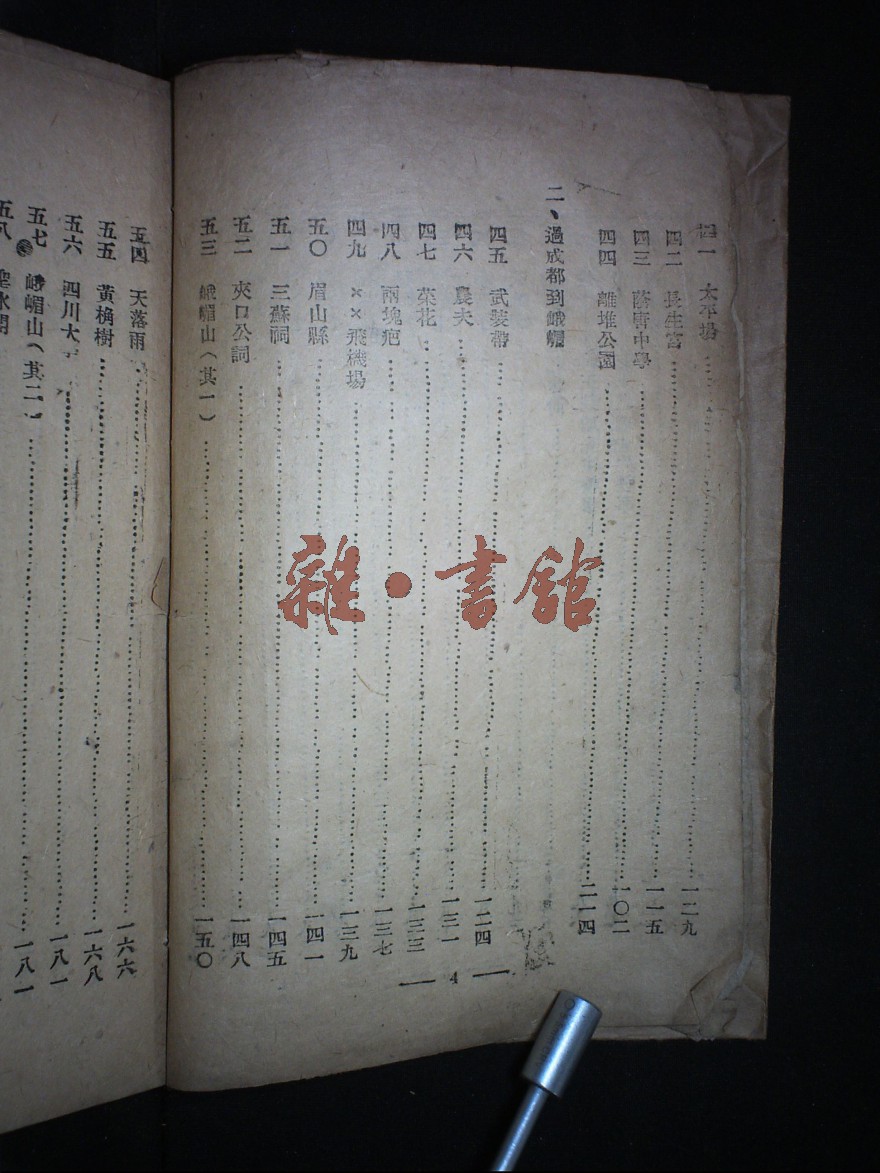 四一 太平場 一二九
四二 長生宮 一一五
四三 蔭唐中學 一〇二
四四 離堆公園 二一四
二、過成都到峨嵋
四五 武裝帶 一二四
四六 農夫 一三一
四七 菜花 一三三
四八 兩塊疤 一三七
四九 ××飛機場 一三九
五〇 眉山縣 一四一
五一 三蘇祠 一四五
五二 夾口公詞 一四八
五三 峨嵋山（其一） 一五〇
— 4 —
五四 天落雨 一六六
五五 黃桷樹 一六八
五六 四川大 一八一
五七 峨嵋山（其二） 一八一
五八 聖水閣
雜·書館